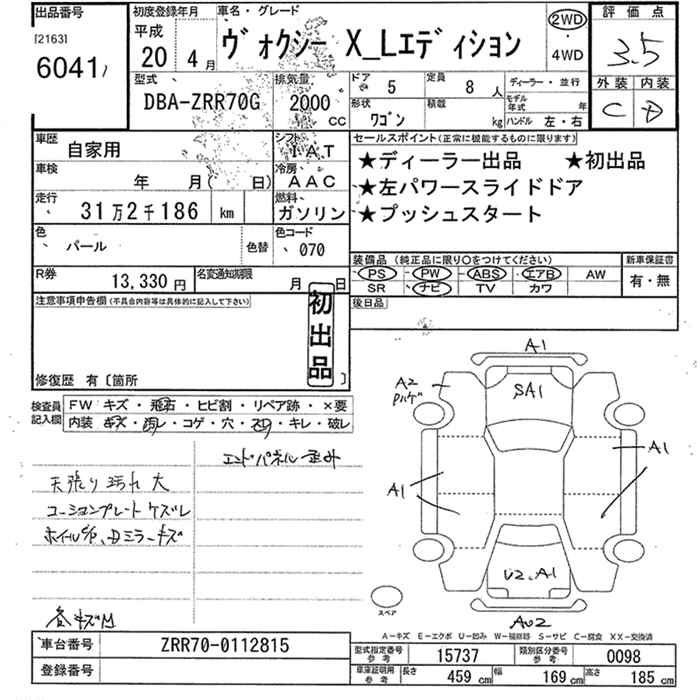 出品番号
[2163]
6041
初度登録年月
平成
20年 4月
車名・グレード
ヴォクシー X_Lエディション
2WD
・
4WD
評価点
3.5
外装 内装
C D
型式
DBA-ZRR70G
排気量
2000 cc
ドア 5
定員 8人
形状 ワゴン
積載 kg
ディーラー・並行
モデル年式 年
ハンドル 左・右
車歴 自家用
シフト IAT
車検 年 月( 日)
冷房 AAC
走行 31万2千186 km
燃料 ガソリン
色 パール
色替
色コード 070
R券 13,330円
名変通知期限 月 日
セールスポイント(正常に機能するものに限ります)
★ディーラー出品 ★初出品
★左パワースライドドア
★プッシュスタート
装備品 (純正品に限り○をつけてください)
PS PW ABS エアB AW
SR ナビ TV カワ
新車保証書
有・無
後日品
注意事項申告欄(不具合内容等は具体的に記入して下さい)
初出品
修復歴 有〔箇所 〕
検査員記入欄
FW キズ・飛石・ヒビ割・リペア跡・×要
内装 キズ・汚れ・コゲ・穴・スリ・キレ・破レ
エンドパネル歪み
天張り汚れ大
コーションプレートケズレ
ホイールキズ、Dミラーキズ
各キズM
A1
A2
SA1
A1
A1
U2、A1
AU2
スペア
A-キズ E-エクボ U-凹み W-補修跡 S-サビ C-腐食 XX-交換済
車台番号 ZRR70-0112815
登録番号
型式指定番号 参考 15737
類別区分番号 参考 0098
車庫証明用 参考 長さ 459 cm 幅 169 cm 高さ 185 cm